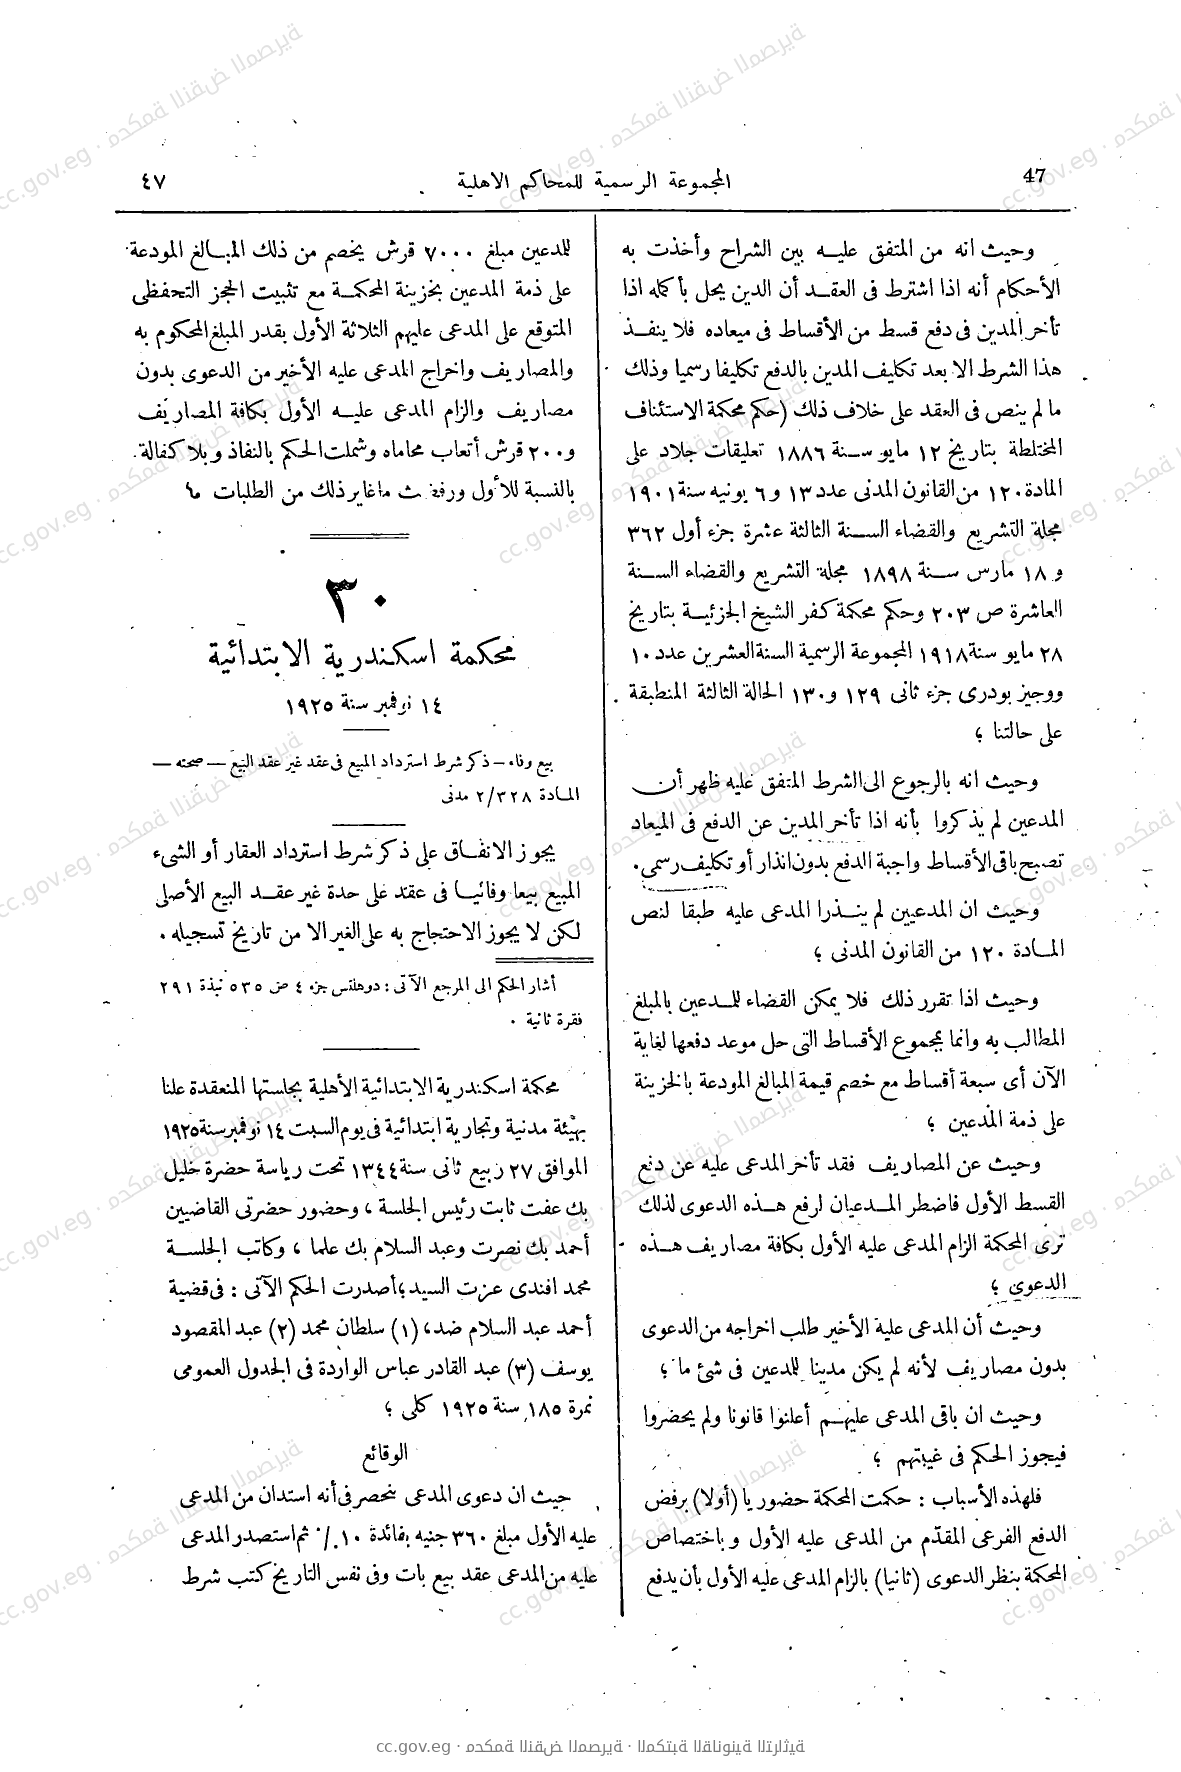 47
المجموعة الرسمية للمحاكم الاهلية
٤٧
وحيث انه من المتفق عليه بين الشراح وأخذت به
الأحكام أنه اذا اشترط فى العقد أن الدين يحل بأكمله اذا
تأخر المدين فى دفع قسط من الأقساط فى ميعاده فلا ينفذ
هذا الشرط الا بعد تكليف المدين بالدفع تكليفا رسميا وذلك
ما لم ينص فى العقد على خلاف ذلك (حكم محكمة الاستئناف
المختلطة بتاريخ ١٢ مايو سنة ١٨٨٦ تعليقات جلاد على
المادة ١٢٠ من القانون المدنى عدد ١٣ و ٦ يونيه سنة ١٩٠١
مجلة التشريع والقضاء السنة الثالثة عشرة جزء أول ٣٦٢
و ١٨ مارس سنة ١٨٩٨ مجلة التشريع والقضاء السنة
العاشرة ص ٢٠٣ وحكم محكمة كفر الشيخ الجزئية بتاريخ
٢٨ مايو سنة ١٩١٨ المجموعة الرسمية السنة العشرين عدد ١٠
ووجيز بودرى جزء ثانى ١٢٩ و ١٣٠ الحالة الثالثة المنطبقة
على حالتنا ؛
وحيث انه بالرجوع الى الشرط المتفق عليه ظهر أن
المدعين لم يذكروا بأنه اذا تأخر المدين عن الدفع فى الميعاد
تصبح باقى الأقساط واجبة الدفع بدون انذار أو تكليف رسمى.
وحيث ان المدعيين لم ينذرا المدعى عليه طبقا لنص
المادة ١٢٠ من القانون المدنى ؛
وحيث اذا تقرر ذلك فلا يمكن القضاء للمدعين بالمبلغ
المطالب به وانما بمجموع الأقساط التى حل موعد دفعها لغاية
الآن أى سبعة أقساط مع خصم قيمة المبالغ المودعة بالخزينة
على ذمة المدعين ؛
وحيث عن المصاريف فقد تأخر المدعى عليه عن دفع
القسط الأول فاضطر المدعيان لرفع هذه الدعوى لذلك
ترى المحكمة الزام المدعى عليه الأول بكافة مصاريف هذه
الدعوى ؛
وحيث أن المدعى عليه الأخير طلب اخراجه من الدعوى
بدون مصاريف لأنه لم يكن مدينا للمدعين فى شئ ما ؛
وحيث ان باقى المدعى عليهم أعلنوا قانونا ولم يحضروا
فيجوز الحكم فى غيبتهم ؛
فلهذه الأسباب : حكمت المحكمة حضوريا (أولا) برفض
الدفع الفرعى المقدّم من المدعى عليه الأول وباختصاص
المحكمة بنظر الدعوى (ثانيا) بالزام المدعى عليه الأول بأن يدفع
للمدعين مبلغ ٧٠٠٠ قرش يخصم من ذلك المبالغ المودعة
على ذمة المدعين بخزينة المحكمة مع تثبيت الحجز التحفظى
المتوقع على المدعى عليهم الثلاثة الأول بقدر المبلغ المحكوم به
والمصاريف واخراج المدعى عليه الأخير من الدعوى بدون
مصاريف والزام المدعى عليه الأول بكافة المصاريف
و ٢٠٠ قرش أتعاب محاماه وشملت الحكم بالنفاذ وبلا كفالة
بالنسبة للأول ورفضت ماغاير ذلك من الطلبات
٣٠
محكمة اسكندرية الابتدائية
١٤ نوفمبر سنة ١٩٢٥
بيع وفاء – ذكر شرط استرداد المبيع فى عقد غير عقد البيع – صحته –
المادة ٢/٣٢٨ مدنى
يجوز الاتفاق على ذكر شرط استرداد العقار أو الشىء
المبيع بيعا وفائيا فى عقد على حدة غير عقد البيع الأصلى
لكن لا يجوز الاحتجاج به على الغير الا من تاريخ تسجيله.
أشار الحكم الى المرجع الآتى : دوهلتس جزء ٤ ص ٥٣٥ نبذة ٢٩١
فقرة ثانية .
محكمة اسكندرية الابتدائية الأهلية بجلستها المنعقدة علنا
بهيئة مدنية وتجارية ابتدائية فى يوم السبت ١٤ نوفمبر سنة ١٩٢٥
الموافق ٢٧ ربيع ثانى سنة ١٣٤٤ تحت رياسة حضرة خليل
بك عفت ثابت رئيس الجلسة ، وحضور حضرتى القاضيين
أحمد بك نصرت وعبد السلام بك علما ، وكاتب الجلسة
محمد افندى عزت السيد ؛ أصدرت الحكم الآتى : فى قضية
أحمد عبد السلام ضد، (١) سلطان محمد (٢) عبد المقصود
يوسف (٣) عبد القادر عباس الواردة فى الجدول العمومى
نمرة ١٨٥ سنة ١٩٢٥ كلى ؛
الوقائع
حيث ان دعوى المدعى تنحصر فى أنه استدان من المدعى
عليه الأول مبلغ ٣٦٠ جنيه بفائدة ١٠ ٪ ثم استصدر المدعى
عليه من المدعى عقد بيع بات وفى نفس التاريخ كتب شرط
cc.gov.eg · محكمة النقض المصرية · المكتبة القانونية التراثية